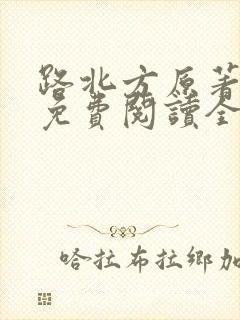 路北方原著
免費閱讀全
哈拉布拉鄉加